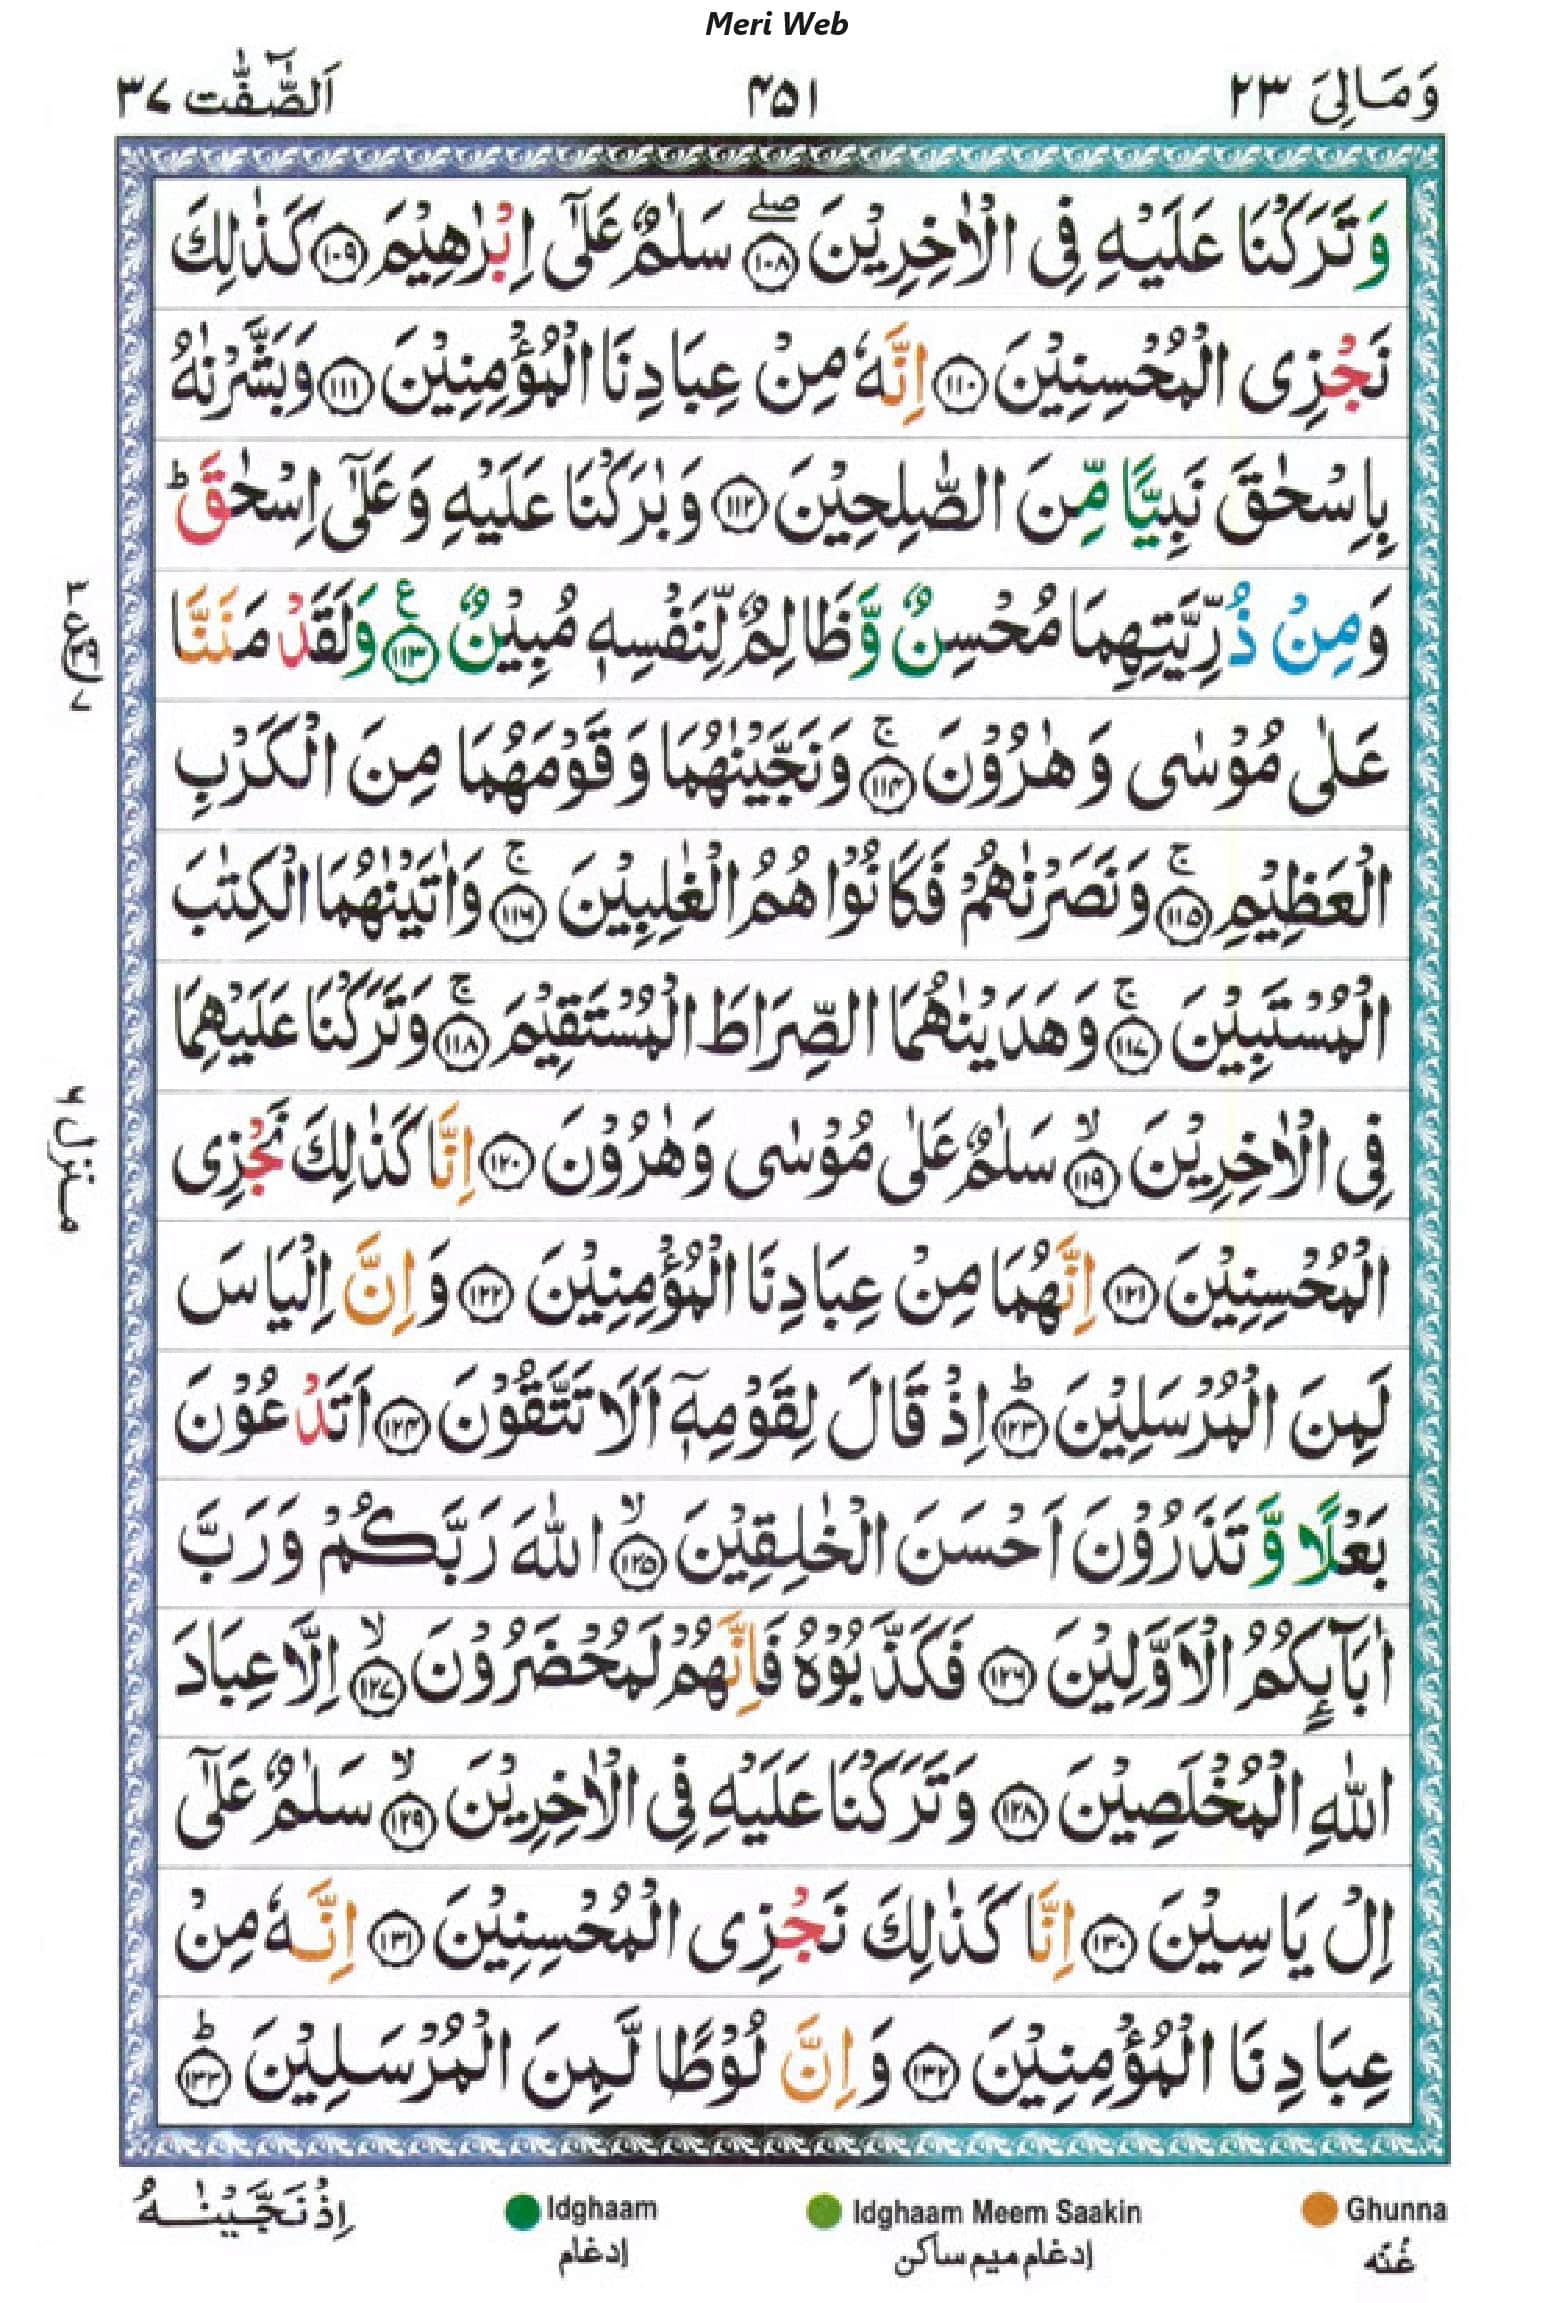 Meri Web
وَمَالِیَ ٢٣
٤٥١
اَلصّٰٓفّٰت ٣٧
وَتَرَكْنَا عَلَيْهِ فِى الْاٰخِرِيْنَ ۖ ١٠٨ سَلٰمٌ عَلٰٓى اِبْرٰهِيْمَ ١٠٩ كَذٰلِكَ
نَجْزِى الْمُحْسِنِيْنَ ١١٠ اِنَّهٗ مِنْ عِبَادِنَا الْمُؤْمِنِيْنَ ١١١ وَبَشَّرْنٰهُ
بِاِسْحٰقَ نَبِيًّا مِّنَ الصّٰلِحِيْنَ ١١٢ وَبٰرَكْنَا عَلَيْهِ وَعَلٰٓى اِسْحٰقَ ؕ
وَمِنْ ذُرِّيَّتِهِمَا مُحْسِنٌ وَّظَالِمٌ لِّنَفْسِهٖ مُبِيْنٌ ١١٣ ع وَلَقَدْ مَنَنَّا
ع
عَلٰى مُوْسٰى وَهٰرُوْنَ ۚ ١١٤ وَنَجَّيْنٰهُمَا وَقَوْمَهُمَا مِنَ الْكَرْبِ
الْعَظِيْمِ ۚ ١١٥ وَنَصَرْنٰهُمْ فَكَانُوْا هُمُ الْغٰلِبِيْنَ ۚ ١١٦ وَاٰتَيْنٰهُمَا الْكِتٰبَ
الْمُسْتَبِيْنَ ۚ ١١٧ وَهَدَيْنٰهُمَا الصِّرَاطَ الْمُسْتَقِيْمَ ۚ ١١٨ وَتَرَكْنَا عَلَيْهِمَا
فِى الْاٰخِرِيْنَ ۙ ١١٩ سَلٰمٌ عَلٰى مُوْسٰى وَهٰرُوْنَ ١٢٠ اِنَّا كَذٰلِكَ نَجْزِى
منزل ٦
الْمُحْسِنِيْنَ ١٢١ اِنَّهُمَا مِنْ عِبَادِنَا الْمُؤْمِنِيْنَ ١٢٢ وَاِنَّ اِلْيَاسَ
لَمِنَ الْمُرْسَلِيْنَ ؕ ١٢٣ اِذْ قَالَ لِقَوْمِهٖٓ اَلَا تَتَّقُوْنَ ١٢٤ اَتَدْعُوْنَ
بَعْلًا وَّتَذَرُوْنَ اَحْسَنَ الْخٰلِقِيْنَ ۙ ١٢٥ اللّٰهَ رَبَّكُمْ وَرَبَّ
اٰبَآئِكُمُ الْاَوَّلِيْنَ ١٢٦ فَكَذَّبُوْهُ فَاِنَّهُمْ لَمُحْضَرُوْنَ ۙ ١٢٧ اِلَّا عِبَادَ
اللّٰهِ الْمُخْلَصِيْنَ ١٢٨ وَتَرَكْنَا عَلَيْهِ فِى الْاٰخِرِيْنَ ۙ ١٢٩ سَلٰمٌ عَلٰٓى
اِلْ يَاسِيْنَ ١٣٠ اِنَّا كَذٰلِكَ نَجْزِى الْمُحْسِنِيْنَ ١٣١ اِنَّهٗ مِنْ
عِبَادِنَا الْمُؤْمِنِيْنَ ١٣٢ وَاِنَّ لُوْطًا لَّمِنَ الْمُرْسَلِيْنَ ؕ ١٣٣
اِذْنَجَّيْنٰهُ
Idghaam
إدغام
Idghaam Meem Saakin
إدغام ميم ساكن
Ghunna
غُنّه